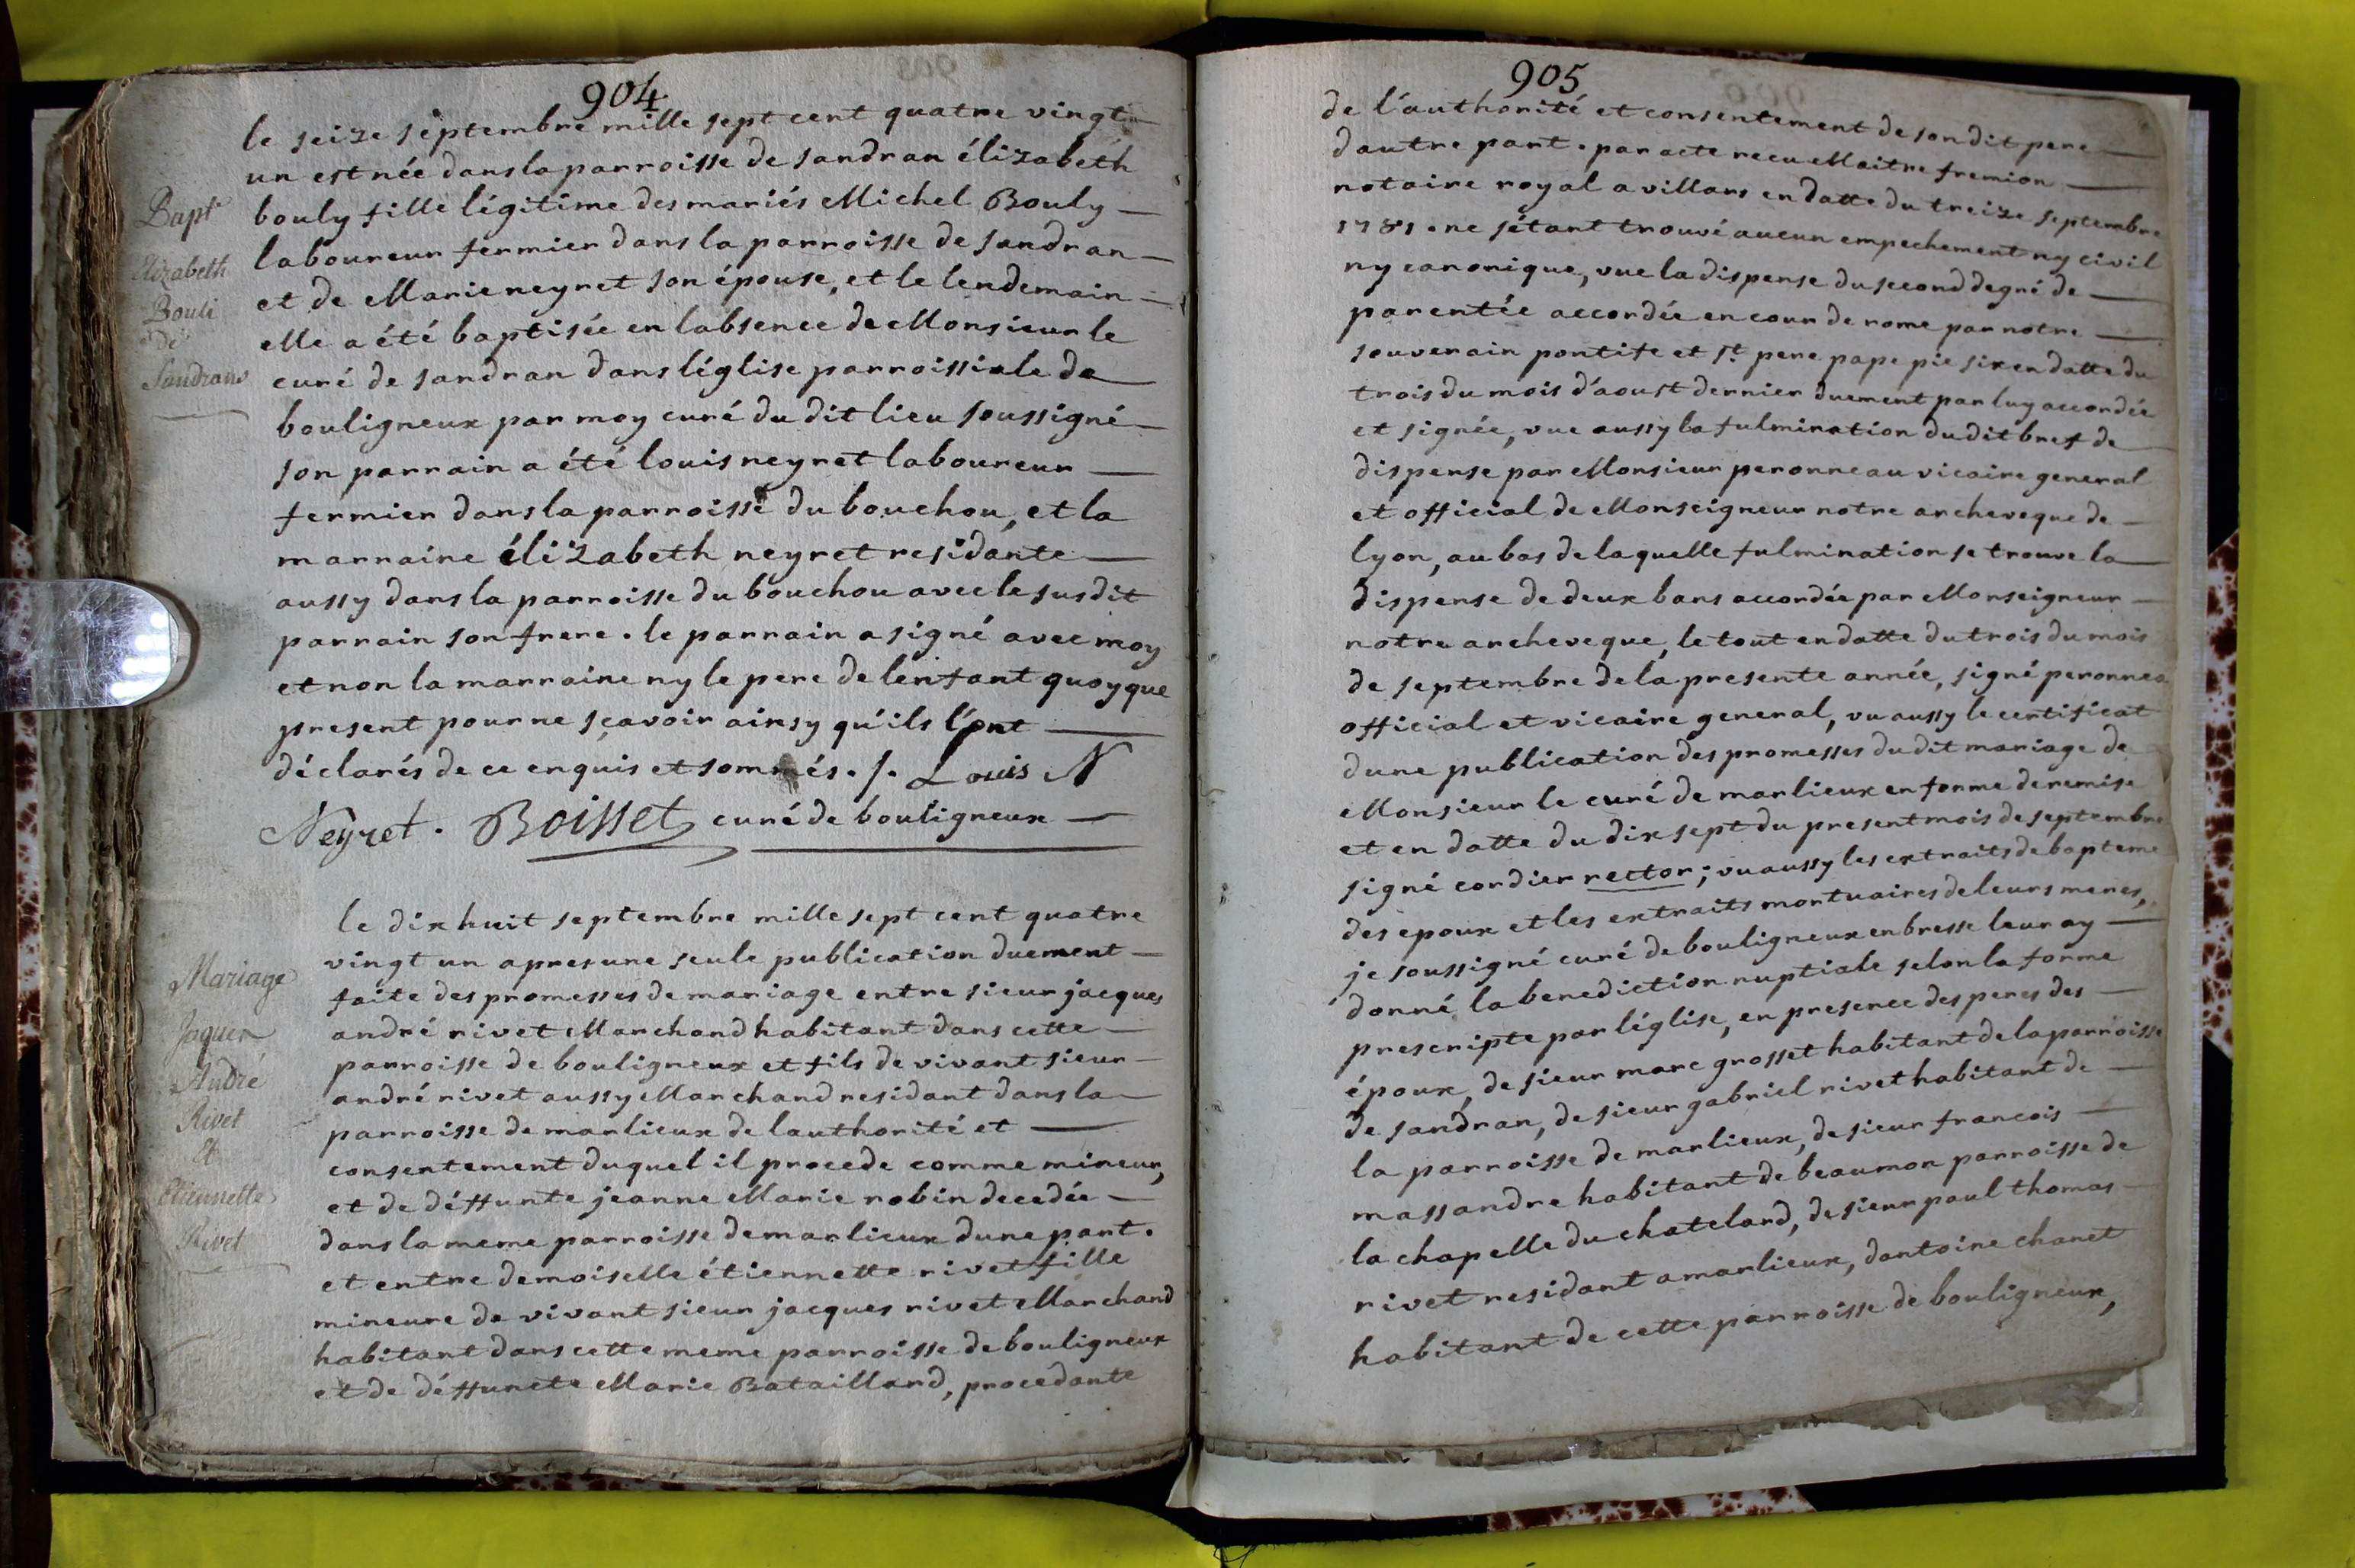 904
le seize septembre mille sept cent quatre vingt
un est née dans la parroisse de sandran élizabeth
bouly fille légitime des mariés Michel Bouly
laboureur fermier dans la parroisse de sandran
et de Marie neyret son épouse, et le lendemain
elle a été baptisée en labsence de Monsieur le
curé de sandran dans léglise parroissiale de
bouligneux par moy curé du dit lieu soussigné
son parrain a été louis neyret laboureur
fermier dans la parroisse du bouchou, et la
marraine élizabeth neyret residante
aussy dans la parroisse du bouchou avec le susdit
parrain son frere. le parrain a signé avec moy
et non la marraine ny le pere de lenfant quoyque
present pour ne sçavoir ainsy qu'ils l'ont
déclarés de ce enquis et sommés ./. Louis N
Neyret. Boisset curé de bouligneux
Bapt
Elizabeth
Bouli
de
Sandrans
le dix huit septembre mille sept cent quatre
vingt un apres une seule publication duement
faite des promesses de mariage entre sieur jacques
andré rivet Marchand habitant dans cette
parroisse de bouligneux et fils de vivant sieur
andré rivet aussy Marchand residant dans la
parroisse de marlieux de lauthorité et
consentement duquel il procede comme mineur,
et de déffunte jeanne Marie robin decedée
dans la meme parroisse de marlieux dune part.
et entre demoiselle étiennette rivet fille
mineure de vivant sieur jacques rivet Marchand
habitant dans cette meme parroisse de bouligneux
et de déffuncte Marie Bataillard, procedante
Mariage
Jaques
André
Rivet
Et
Etiennette
Rivet
905
de l'authorité et consentement de son dit pere
dautre part. par acte recu Maitre fremion
notaire royal a villars en datte du treize septembre
1781. ne s'étant trouvé aucun empechement ny civil
ny canonique, vue la dispense du second degré de
parentée accordée en cour de rome par notre
souverain pontife et st pere pape pie six en datte du
trois du mois d'aoust dernier duement par luy accordée
et signée, vue aussy la fulmination du dit bref de
dispense par Monsieur peronneau vicaire general
et official de Monseigneur notre archeveque de
lyon, au bas de laquelle fulmination se trouve la
dispense de deux bans accordée par Monseigneur
notre archeveque, le tout en datte du trois du mois
de septembre de la presente année, signé peronneau
official et vicaire general, vu aussy le certificat
dune publication des promesses du dit mariage de
Monsieur le curé de marlieux en forme de remise
et en datte du dix sept du present mois de septembre
signé cordier rector; vu aussy les extraits de bapteme
des epoux et les extraits mortuaires de leurs meres,
je soussigné curé de bouligneux en bresse leur ay
donné la benediction nuptiale selon la forme
prescripte par léglise, en presence des peres des
époux, de sieur marc grosset habitant de la parroisse
de sandran, de sieur gabriel rivet habitant de
la parroisse de marlieux, de sieur francois
massandre habitant de beaumon parroisse de
la chapelle du chatelard, de sieur paul thomas
rivet residant a marlieux, dantoine chanet
habitant de cette parroisse de bouligneux,